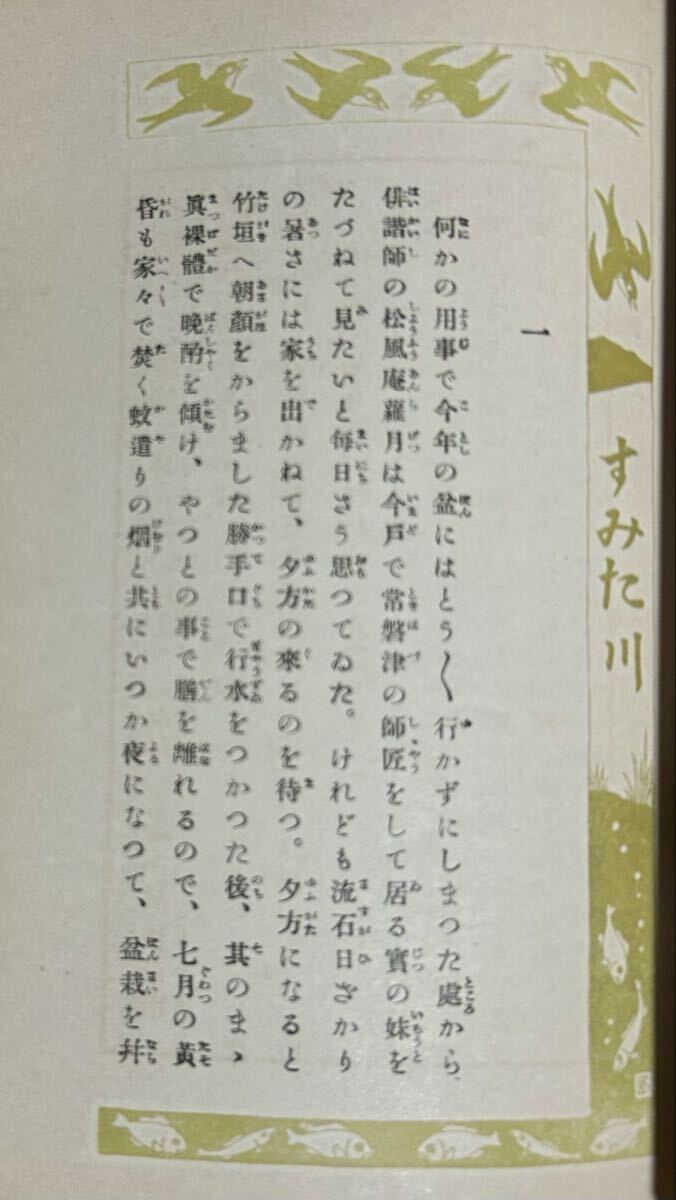 すみた川
一
何かの用事で今年の盆にはとう〱行かずにしまつた處から、
俳諧師の松風庵蘿月は今戸で常磐津の師匠をして居る實の妹を
たづねて見たいと毎日さう思つてゐた。けれども流石日ざかり
の暑さには家を出かねて、夕方の來るのを待つ。夕方になると
竹垣へ朝顏をからました勝手口で行水をつかつた後、其のまゝ
眞裸體で晩酌を傾け、やつとの事で膳を離れるので、七月の黃
昏も家々で焚く蚊遣りの烟と共にいつか夜になつて、盆栽を幷